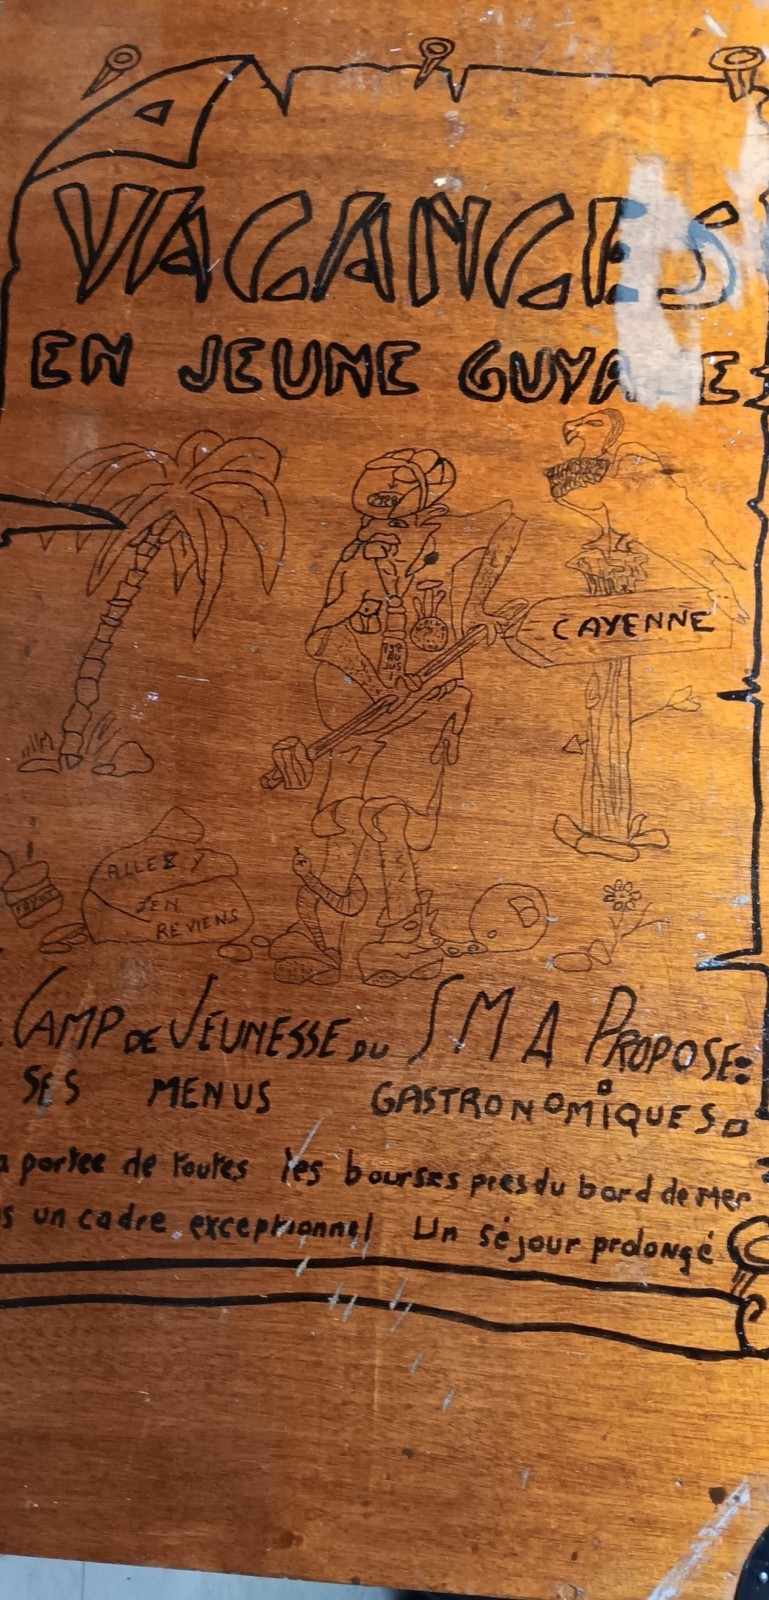 VACANCES
EN JEUNE GUYA E
CAYENNE
ALLEZ Y
J'EN
REVIENS
CAMP DE JEUNESSE DU SMA PROPOSE:
SES MENUS GASTRONOMIQUES.
a portée de toutes les bourses pres du bord de mer
s un cadre exceptionnel Un séjour prolongé